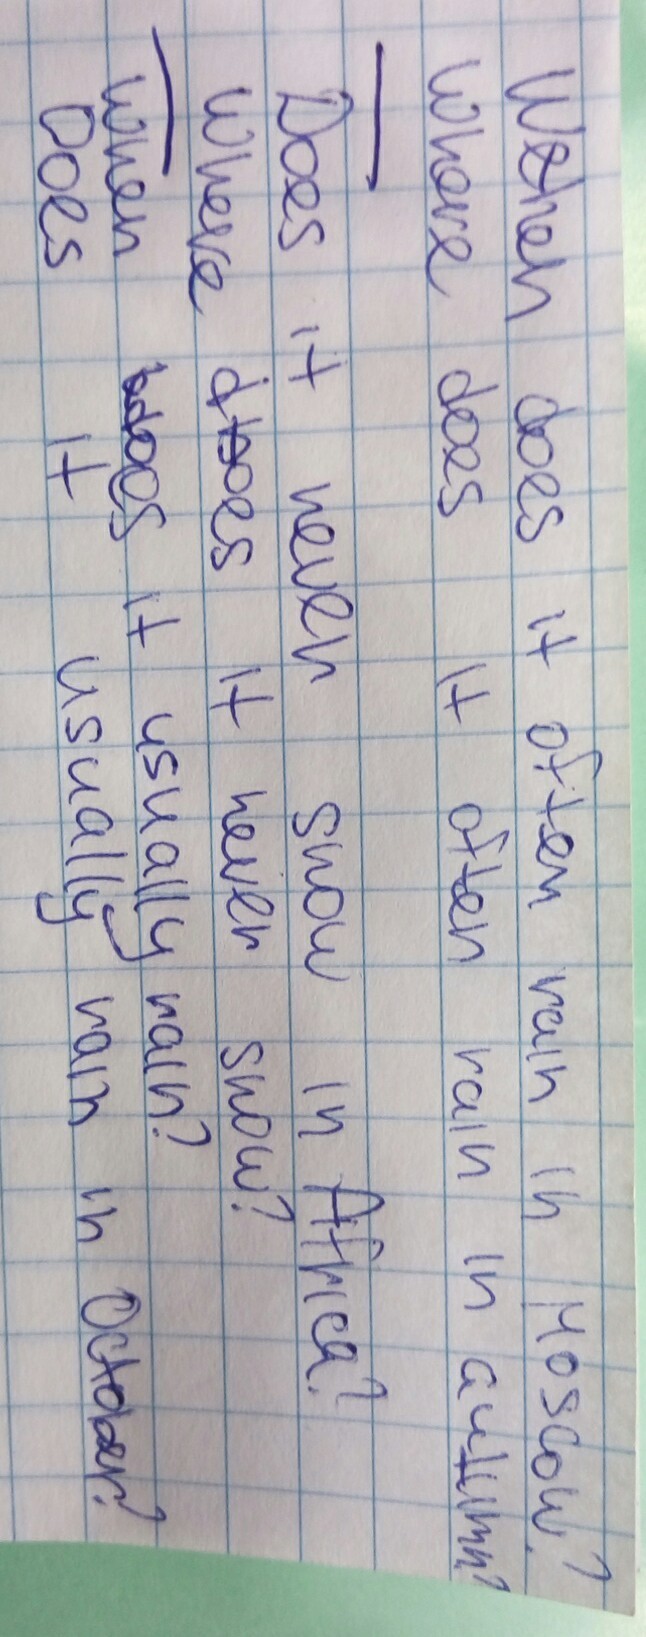 When does it often rain in Moscow?
Where does it often rain in autumn?
Does it never snow in Africa?
Where does it never snow?
When does it usually rain?
Does it usually rain in October?